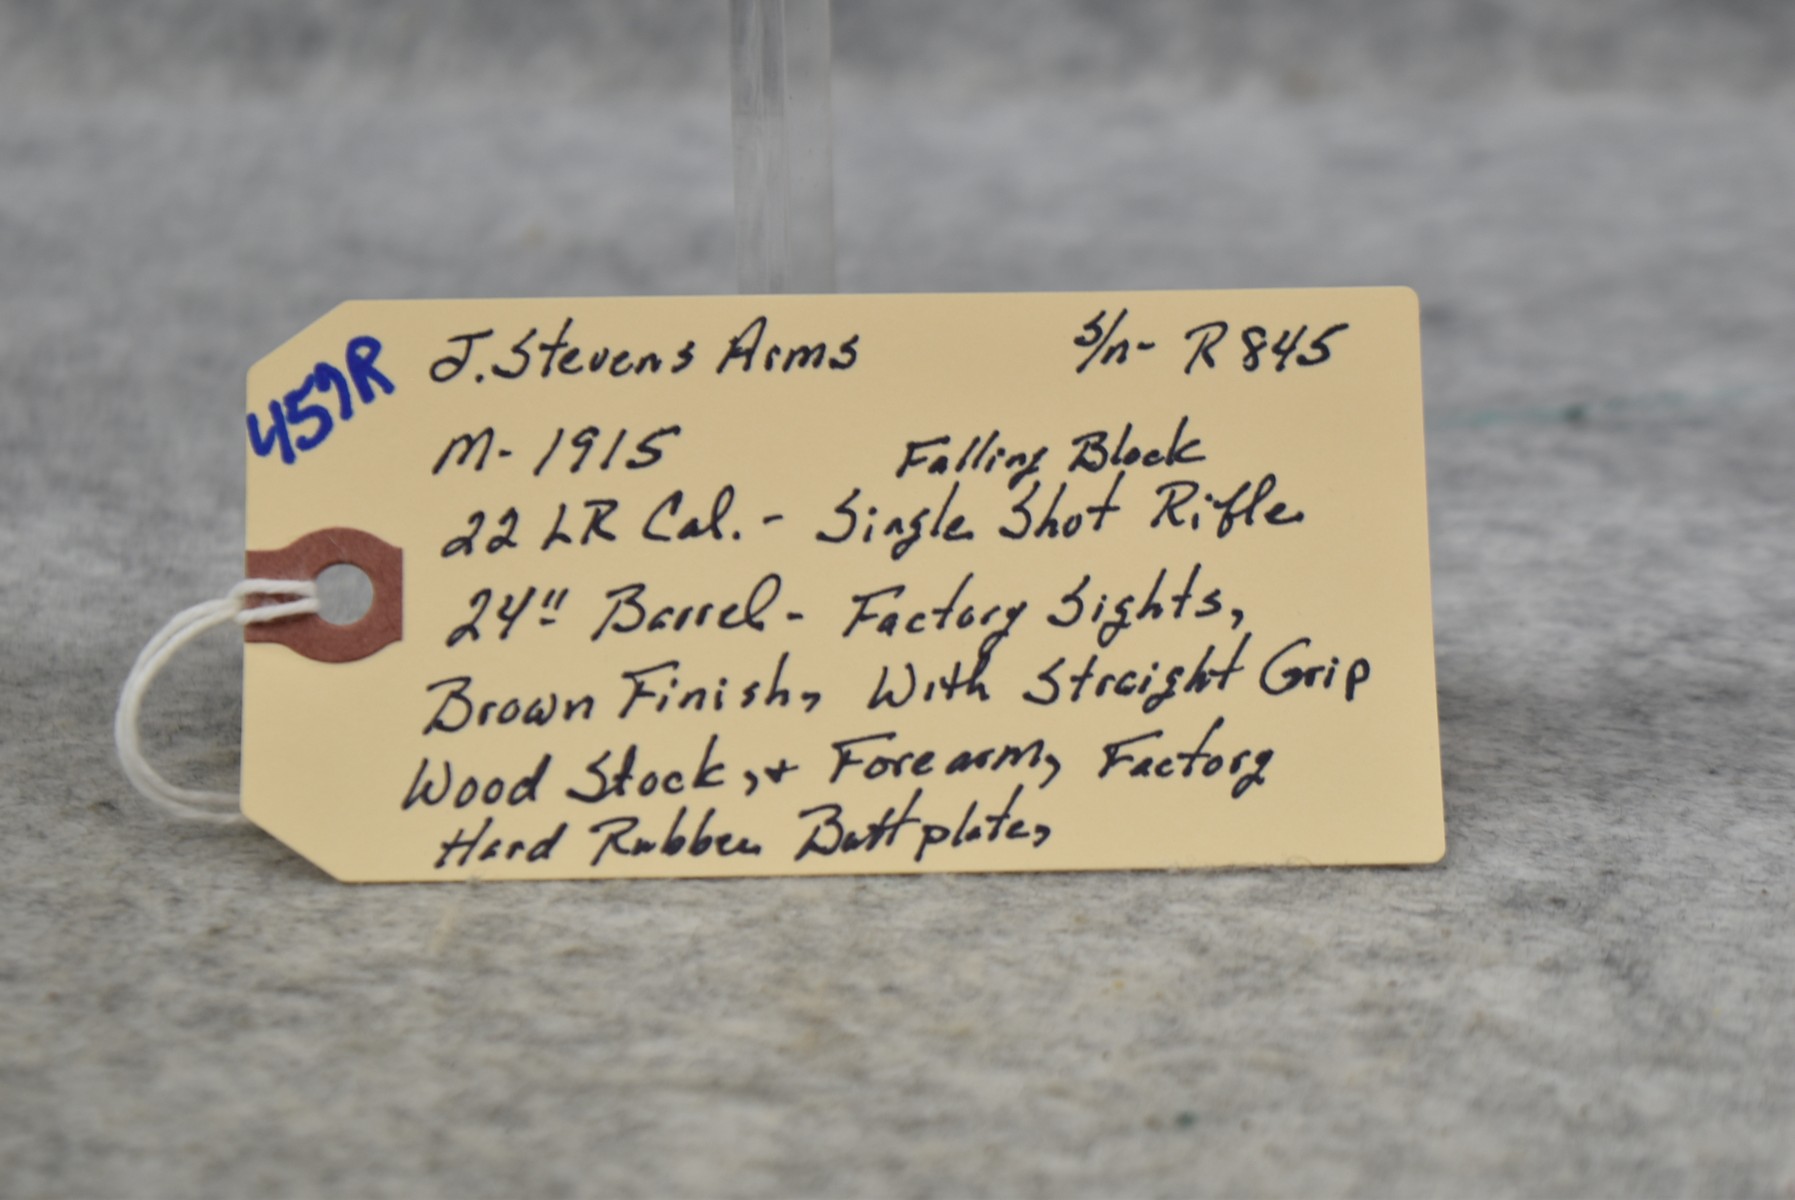 459R
J. Stevens Arms S/n- R845
M- 1915 Falling Block
22 LR Cal. - Single Shot Rifle
24" Barrel - Factory Sights,
Brown Finish, With Straight Grip
Wood Stock, + Forearm, Factory
Hard Rubber Buttplate,